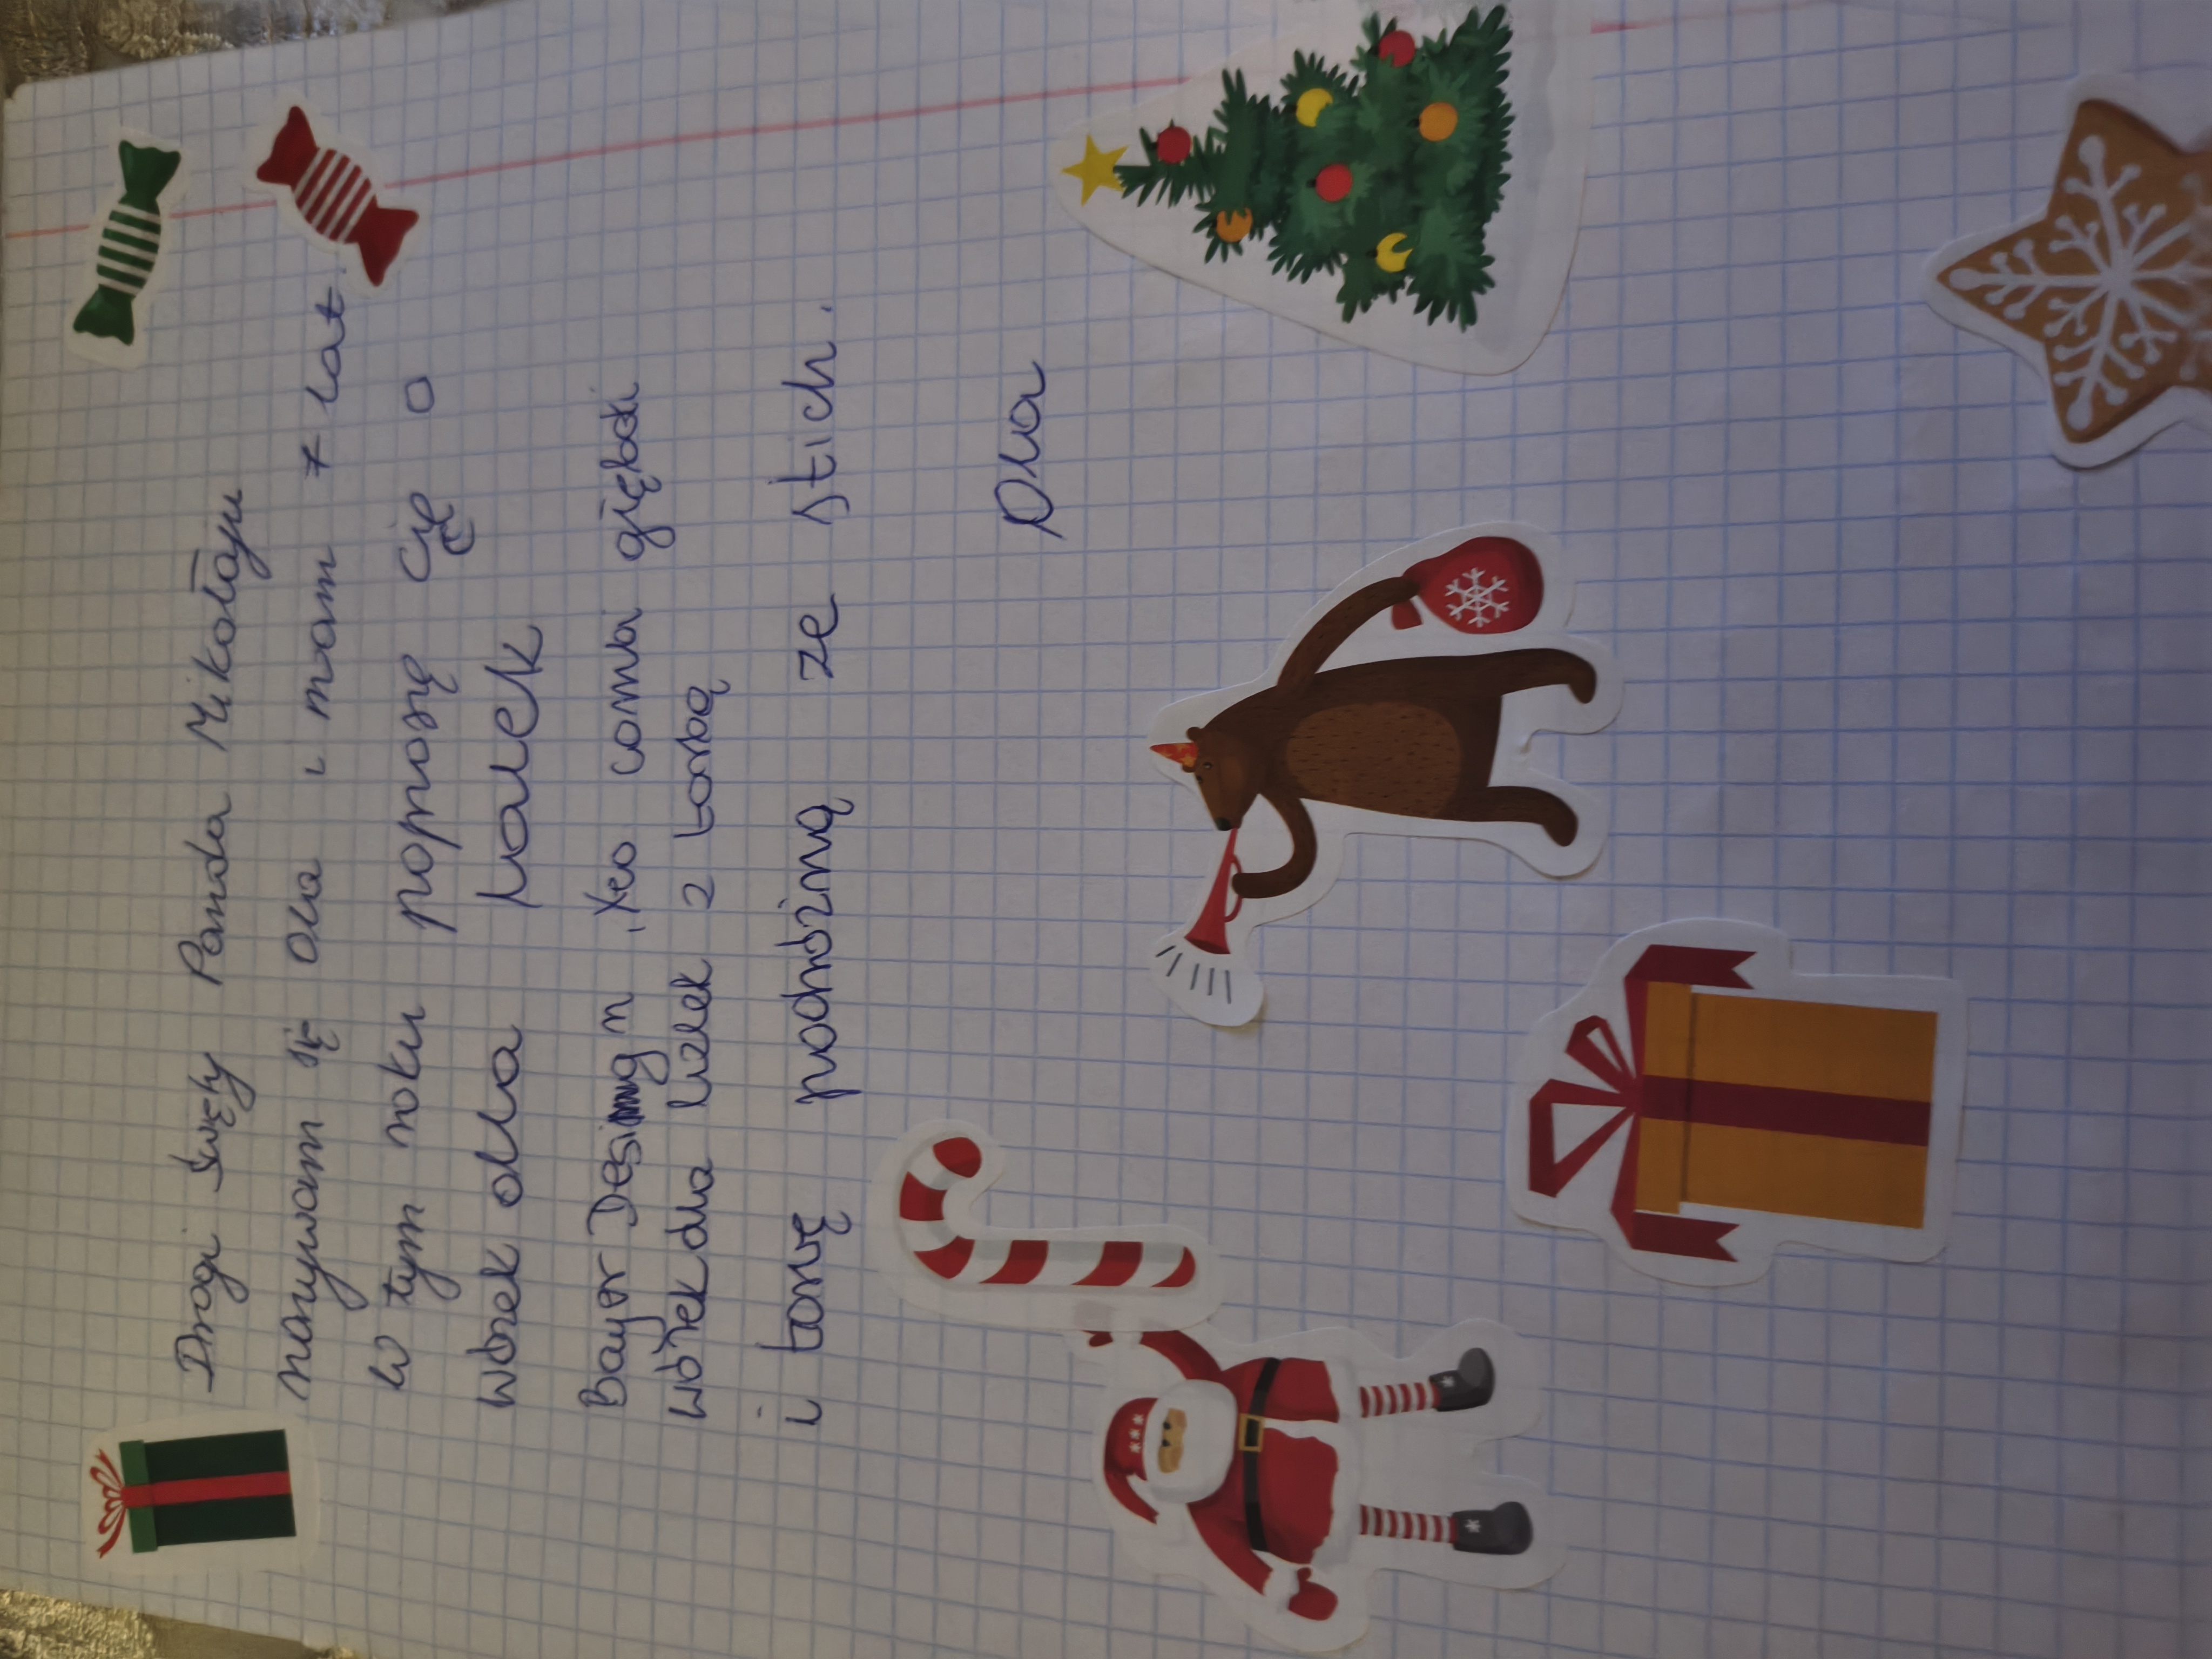 Drogi Święty Panda Mikołaju
nazywam się Ola i mam 7 lat.
W tym roku poproszę cię o
wózek dla lalek
Bayer Design, Xeo coma głęboki
wózek dla lalek z torbą
i torbę podróżną ze stich.
Ola